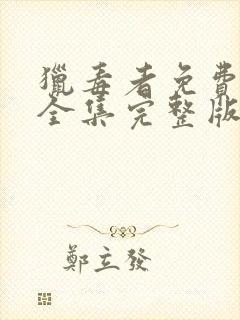 獵毒者免費
全集完整版
鄭立發